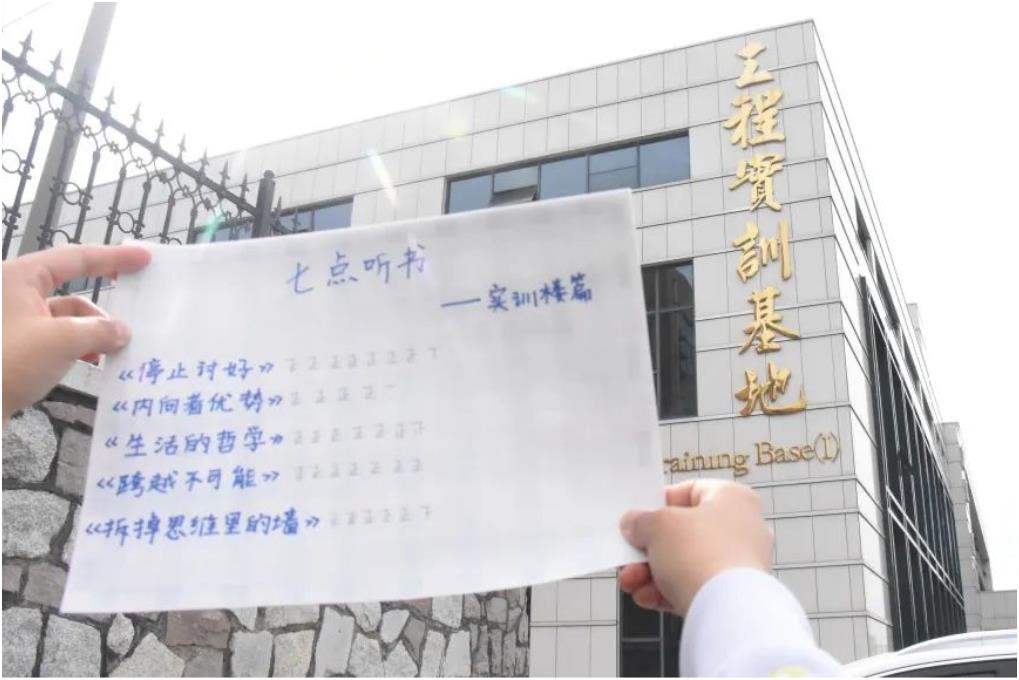 七点听书
——实训楼篇
《停止讨好》
《内向者优势》
《生活的哲学》
《跨越不可能》
《拆掉思维里的墙》
工程實訓基地
raining Base(1)